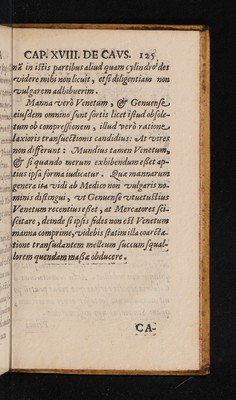 CAP. XVIII. DE CAVS. 125
nū in istis partibus aliud quam cylindrōdes
videre mihi non licuit, etsi diligentiam non
vulgarem adhibuerim.
Manna verò Venetum, & Genuense
eiusdem omnino sunt sortis licet istud obsole-
tum ob compressionem, illud verò ratione
laxioris transuectionis candidius: At vires
non differunt: Mundius tamen Venetum,
& si quando merum exhibendum esset ap-
tius ipsa forma iudicatur. Qua mannarum
genera ita vidi ab Medico non vulgaris no-
minis distingui, vt Genuense vtuetustius
Venetum recentius esset, at Mercatores sci-
scitare, deinde si ipsis fides non est Venetum
manna comprime, videbis statim illa coarcta-
tione transudantem melleum succum squal-
lorem quendam massæ obducere.
CA-